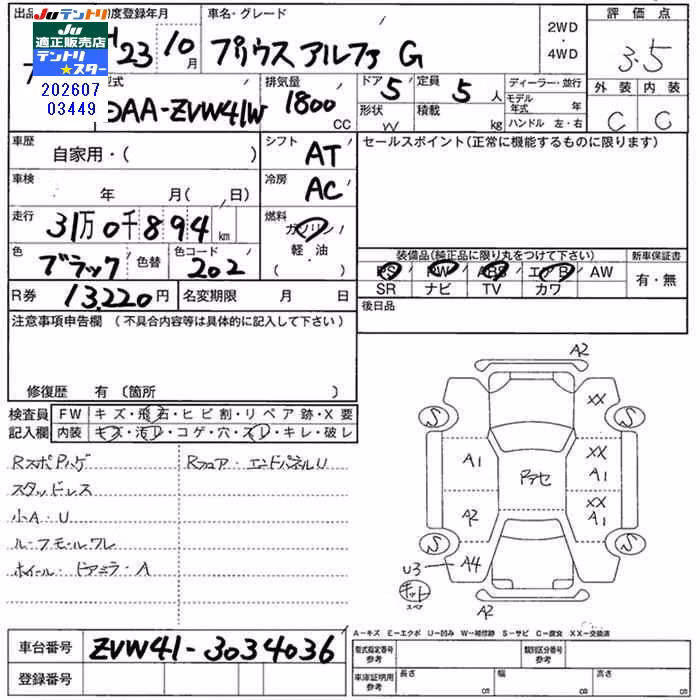 出品
初度登録年月
車名・グレード
2WD
・
4WD
評価点
JUテントリ
JU
適正販売店
テントリ
★スター
202607
03449
23 10月
プリウスアルファ G
3.5
型式
DAA-ZVW41W
排気量
1800 CC
ドア 5
定員 5 人
形状 W
積載 kg
ディーラー・並行
モデル年式 年
ハンドル 左・右
外装 内装
C C
車歴
自家用・( )
シフト
AT
セールスポイント(正常に機能するものに限ります)
車検
年 月( / 日)
冷房
AC
走行
31万0千894km
燃料
ガソリン
軽・油
( )
色
ブラック
色替
色コード
202
装備品(純正品に限り丸をつけて下さい)
新車保証書
PS PW ABS エアB AW
SR ナビ TV カワ
有・無
R券 13,220円
名変期限 月 日
後日品
注意事項申告欄(不具合内容等は具体的に記入して下さい)
修復歴 有〔箇所 〕
検査員
記入欄
FW キズ・飛石・ヒビ割・リペア跡・X要
内装 キズ・汚レ・コゲ・穴・スレ・キレ・破レ
RスポPハゲ
Rフロア・エンドパネルU
スタッドレス
小A・U
ルーフモールワレ
ホイール・ドアミラーA
A2
XX
S S
A1
XX
A1
Pアセ
A2
XX
A1
S S
U3
A4
キット
スペア
A2
A-キズ E-エクボ U-凹み W-補修跡 S-サビ C-腐食 XX-交換済
車台番号 ZVW41-3034036
登録番号
型式指定番号
参考
類別区分番号
参考
車庫証明用
参考
長さ cm
幅 cm
高さ cm